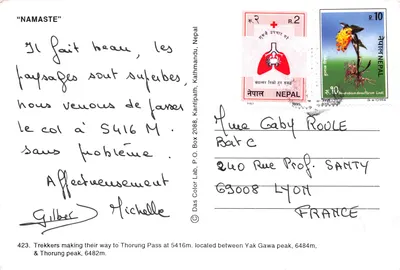 "NAMASTE"
Il fait beau, les
paysages sont superbes
nous venons de passer
le col à 5416 M.
sans problème.
Affectueusement
Gilbert Michelle
423. Trekkers making their way to Thorung Pass at 5416m. located between Yak Gawa peak, 6484m,
& Thorung peak, 6482m.
© Das Color Lab, P.O. Box 2088, Kantipath, Kathmandu, Nepal
रु. २ R. 2
नेपाल NEPAL
रु. 10
नेपाल NEPAL
रु. १०
Mme Gaby ROULE
Bat C
240 Rue Prof. SANTY
69008 LYON
FRANCE